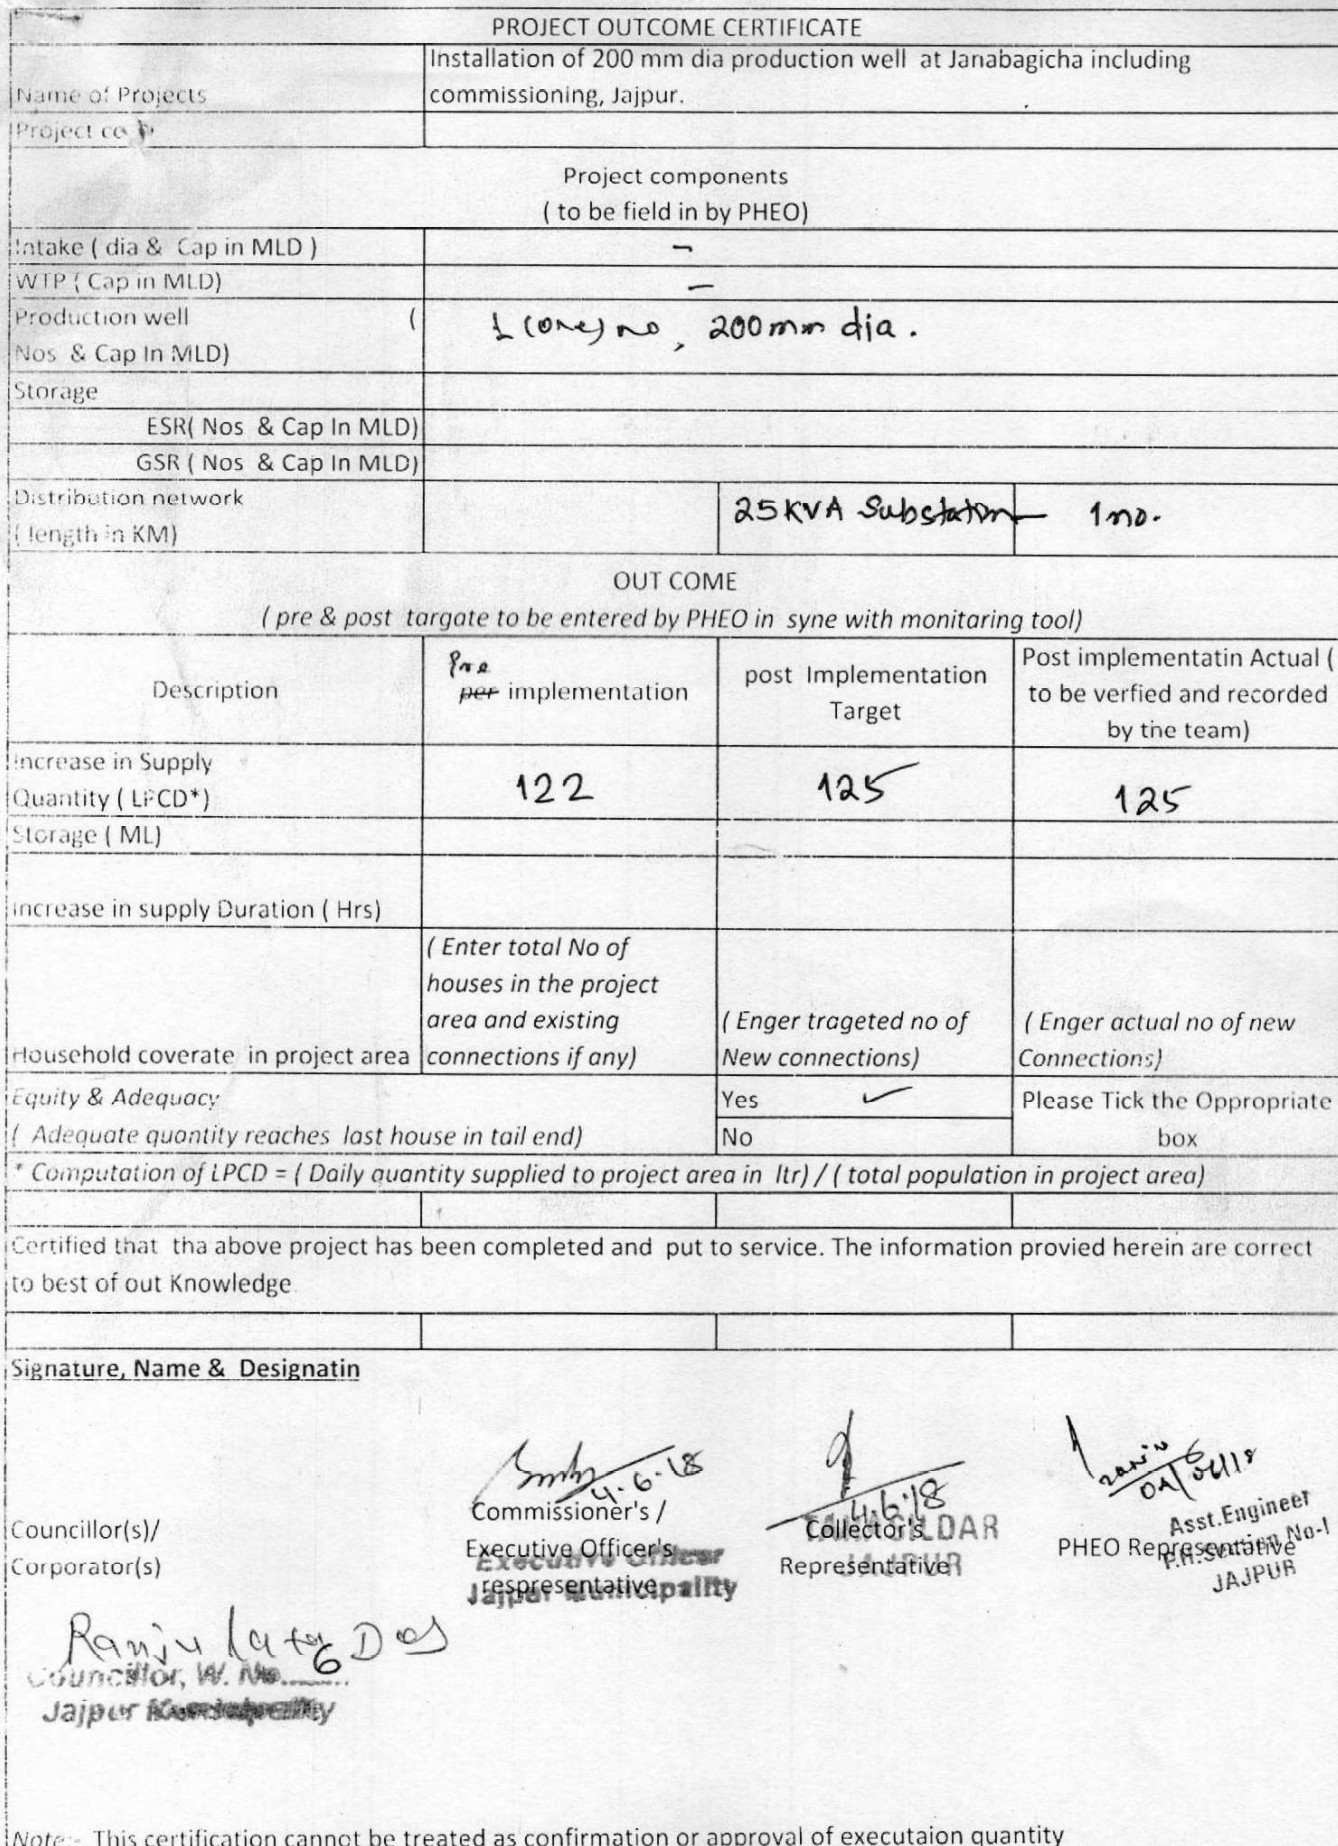 PROJECT OUTCOME CERTIFICATE
Name of Projects
Installation of 200 mm dia production well at Janabagicha including
commissioning, Jajpur.
Project co
Project components
( to be field in by PHEO)
Intake ( dia & Cap in MLD ) -
WTP ( Cap in MLD) -
Production well (
Nos & Cap In MLD)
1 (one) no, 200mm dia.
Storage
ESR( Nos & Cap In MLD)
GSR ( Nos & Cap In MLD)
Distribution network
( length in KM)
25KVA Substation 1no.
OUT COME
( pre & post targate to be entered by PHEO in syne with monitaring tool)
Description
Pre
per implementation
post Implementation
Target
Post implementatin Actual (
to be verfied and recorded
by the team)
Increase in Supply
Quantity ( LPCD*)
122 125 125
Storage ( ML)
Increase in supply Duration ( Hrs)
Household coverate in project area
( Enter total No of
houses in the project
area and existing
connections if any)
( Enger trageted no of
New connections)
( Enger actual no of new
Connections)
Equity & Adequacy
( Adequate quantity reaches last house in tail end)
Yes ✓
No
Please Tick the Oppropriate
box
* Computation of LPCD = ( Daily quantity supplied to project area in ltr) / ( total population in project area)
Certified that tha above project has been completed and put to service. The information provied herein are correct
to best of out Knowledge
Signature, Name & Designatin
Councillor(s)/
Corporator(s)
Ranju lata Das
Councillor, W. No. 6
Jajpur Municipality
4.6.18
Commissioner's /
Executive Officer's
respresentative
Executive Officer
Jajpur Municipality
4.6.18
Collector's
Representative
TAHASILDAR
JAJPUR
04/06/18
PHEO Representative
Asst.Engineer
P.H.Section No-I
JAJPUR
Note:- This certification cannot be treated as confirmation or approval of executaion quantity